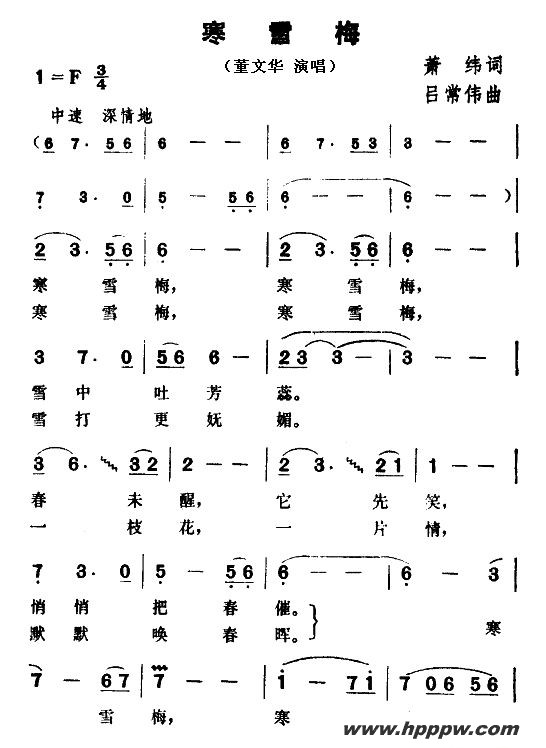 寒雪梅
(董文华 演唱)
萧 纬词
吕常伟曲
1=F 3/4
中速 深情地
(6 7· 56 | 6 - - | 6 7· 53 | 3 - - |
7 3· 0 | 5 - 56 | 6 - - | 6 - - ) |
2 3· 56 | 6 - - | 2 3· 56 | 6 - - |
寒 雪梅, 寒 雪梅,
寒 雪梅, 寒 雪梅,
3 7· 0 | 56 6 - | 23 3 - | 3 - - |
雪中 吐芳 蕊。
雪打 更妩 媚。
3 6· 32 | 2 - - | 2 3· 21 | 1 - - |
春 未醒, 它 先笑,
一 枝花, 一 片情,
7 3· 0 | 5 - 56 | 6 - - | 6 - 3 |
悄悄 把春催。
默默 唤春晖。 寒
7 - 67 | 7 - - | i - 7i | 7 06 56 |
雪 梅, 寒
www.hpppw.com